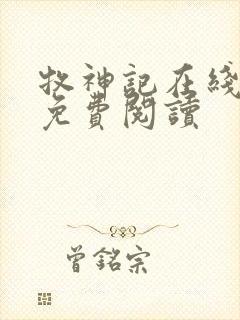 牧神記在綫
免費閱讀
曾銘宗